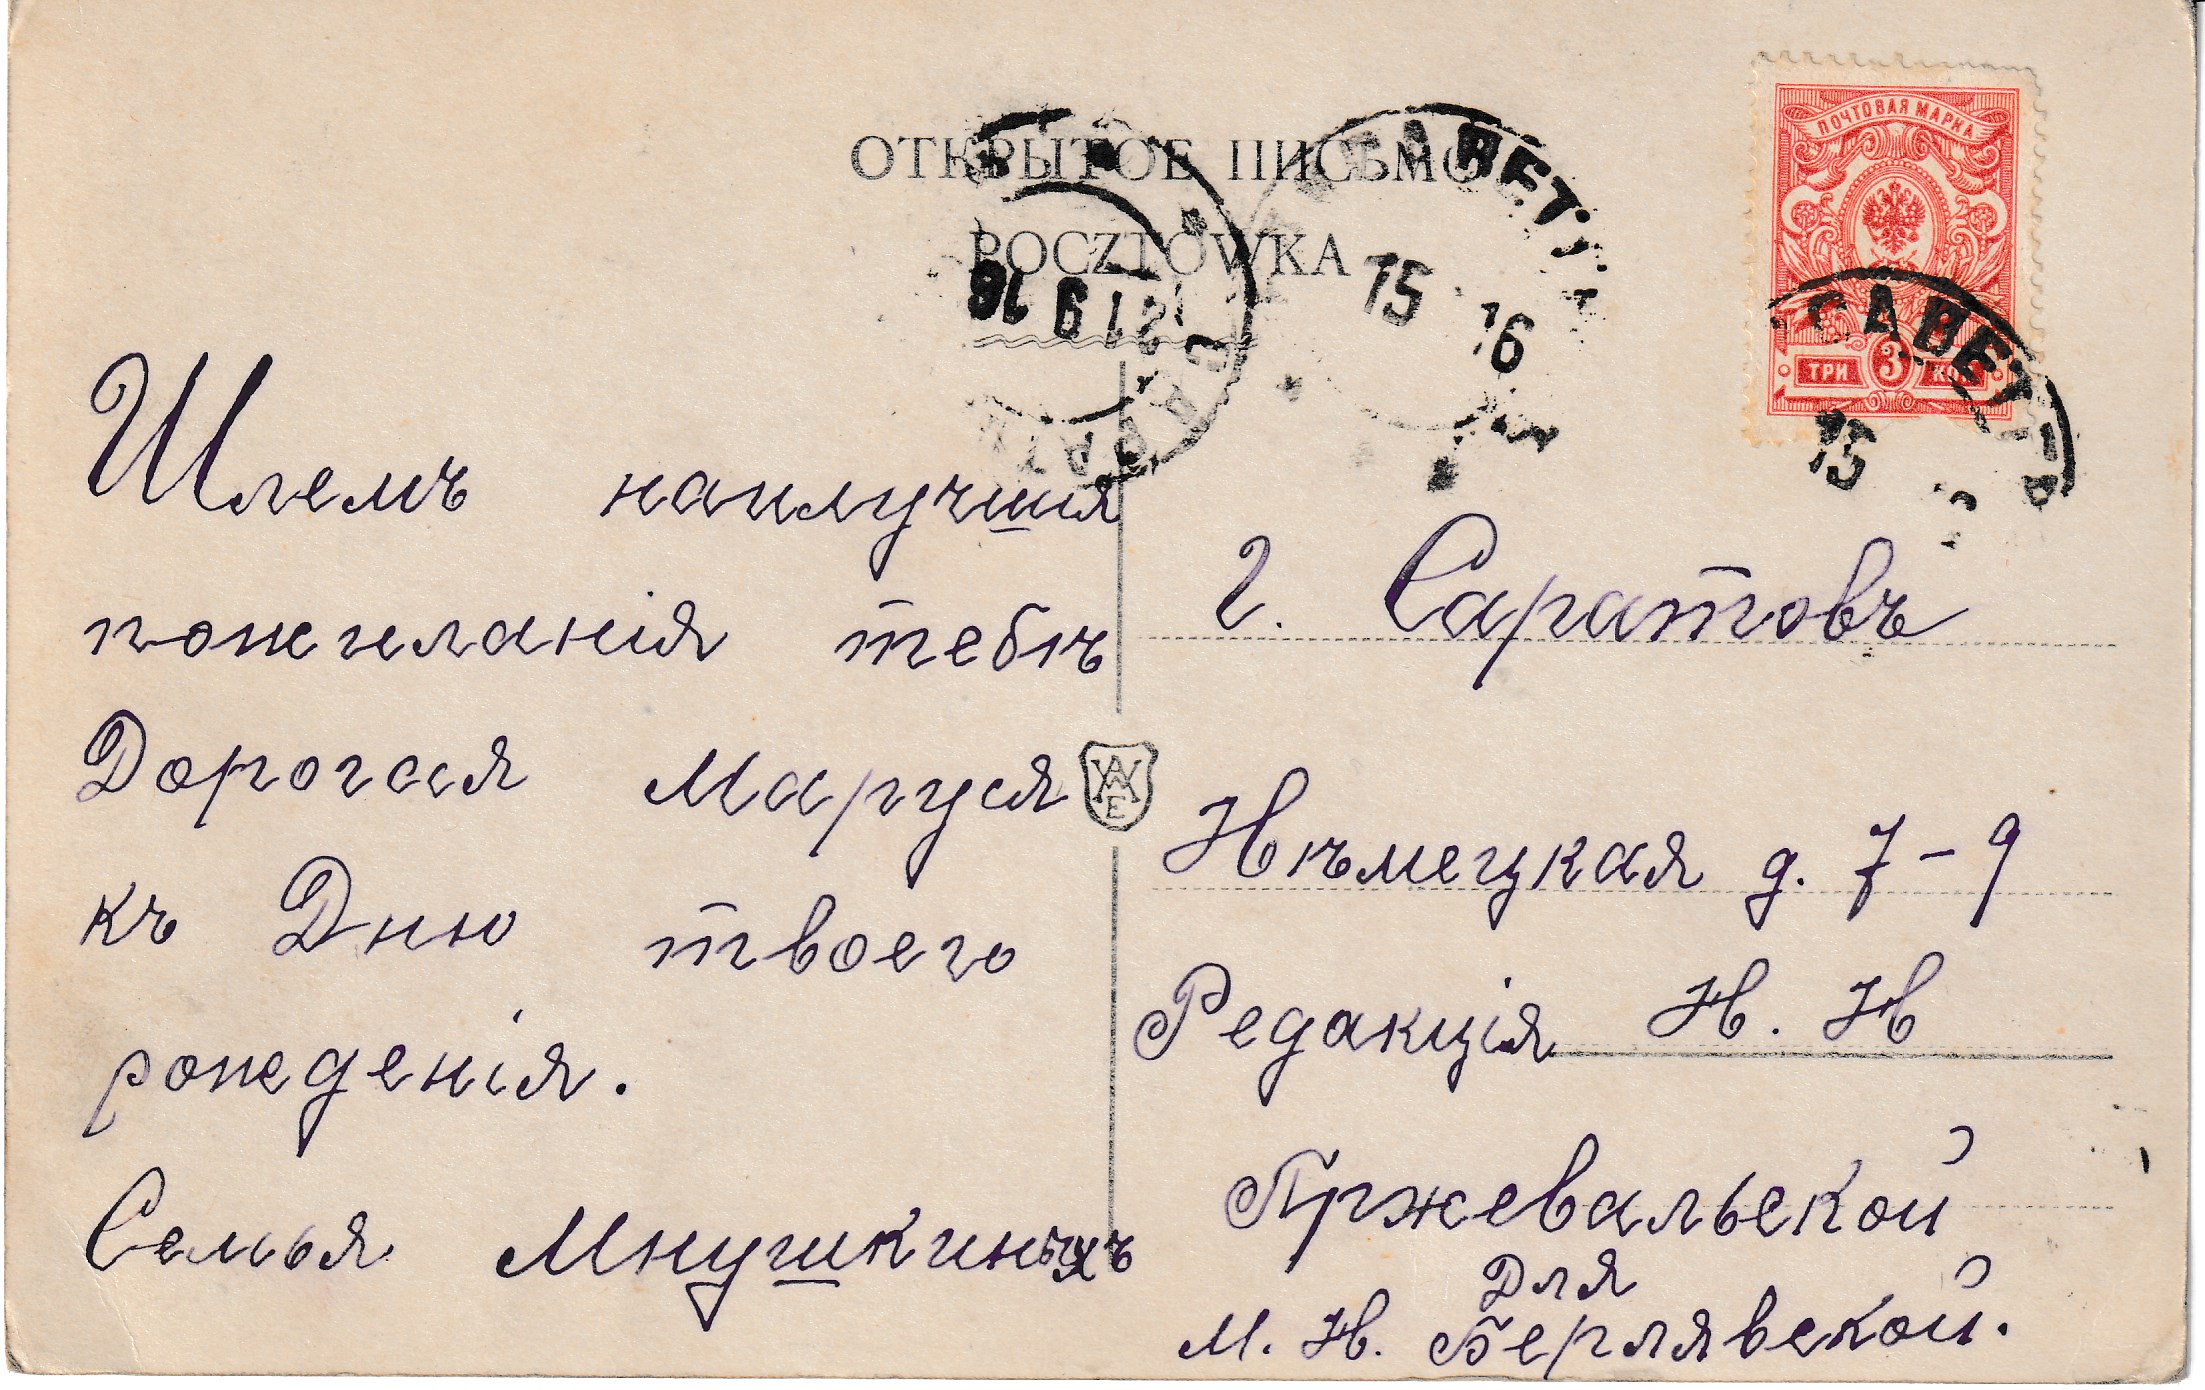 ОТКРЫТОЕ ПИСЬМО
POCZTÓWKA
ПОЧТОВАЯ МАРКА
ТРИ 3 КОП
САВЕТ
15
15 16
21 9 16
Шлемъ наилучшія
пожеланія тебѣ
Дорогая Маруся
къ Дню твоего
рожденія.
Семья Мнушкиныхъ
г. Саратовъ
Нѣмецкая д. 7-9
Редакція Н. Н
Пржевальской
для
М. Н. Берлявской.